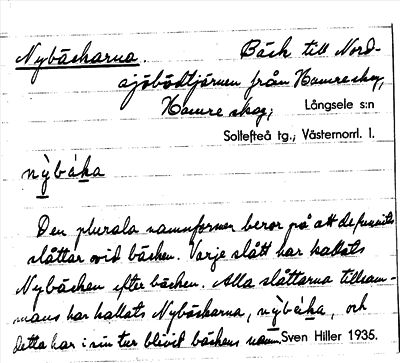 Nybäckarna. Bäck till Nord-
sjöbodtjärnen från Hamre skog,
Hamre skog; Långsele s:n
Sollefteå tg.; Västernorrl. l.
nỳbáka
Den plurala namnformen beror på att de funnits
slåttar vid bäcken. Varje slått har kallats
Nybäcken efter bäcken. Alla slåttarna tillsam-
mans har kallats Nybäckarna, nỳbáka, och
detta har i sin tur blivit bäckens namn. Sven Hiller 1935.